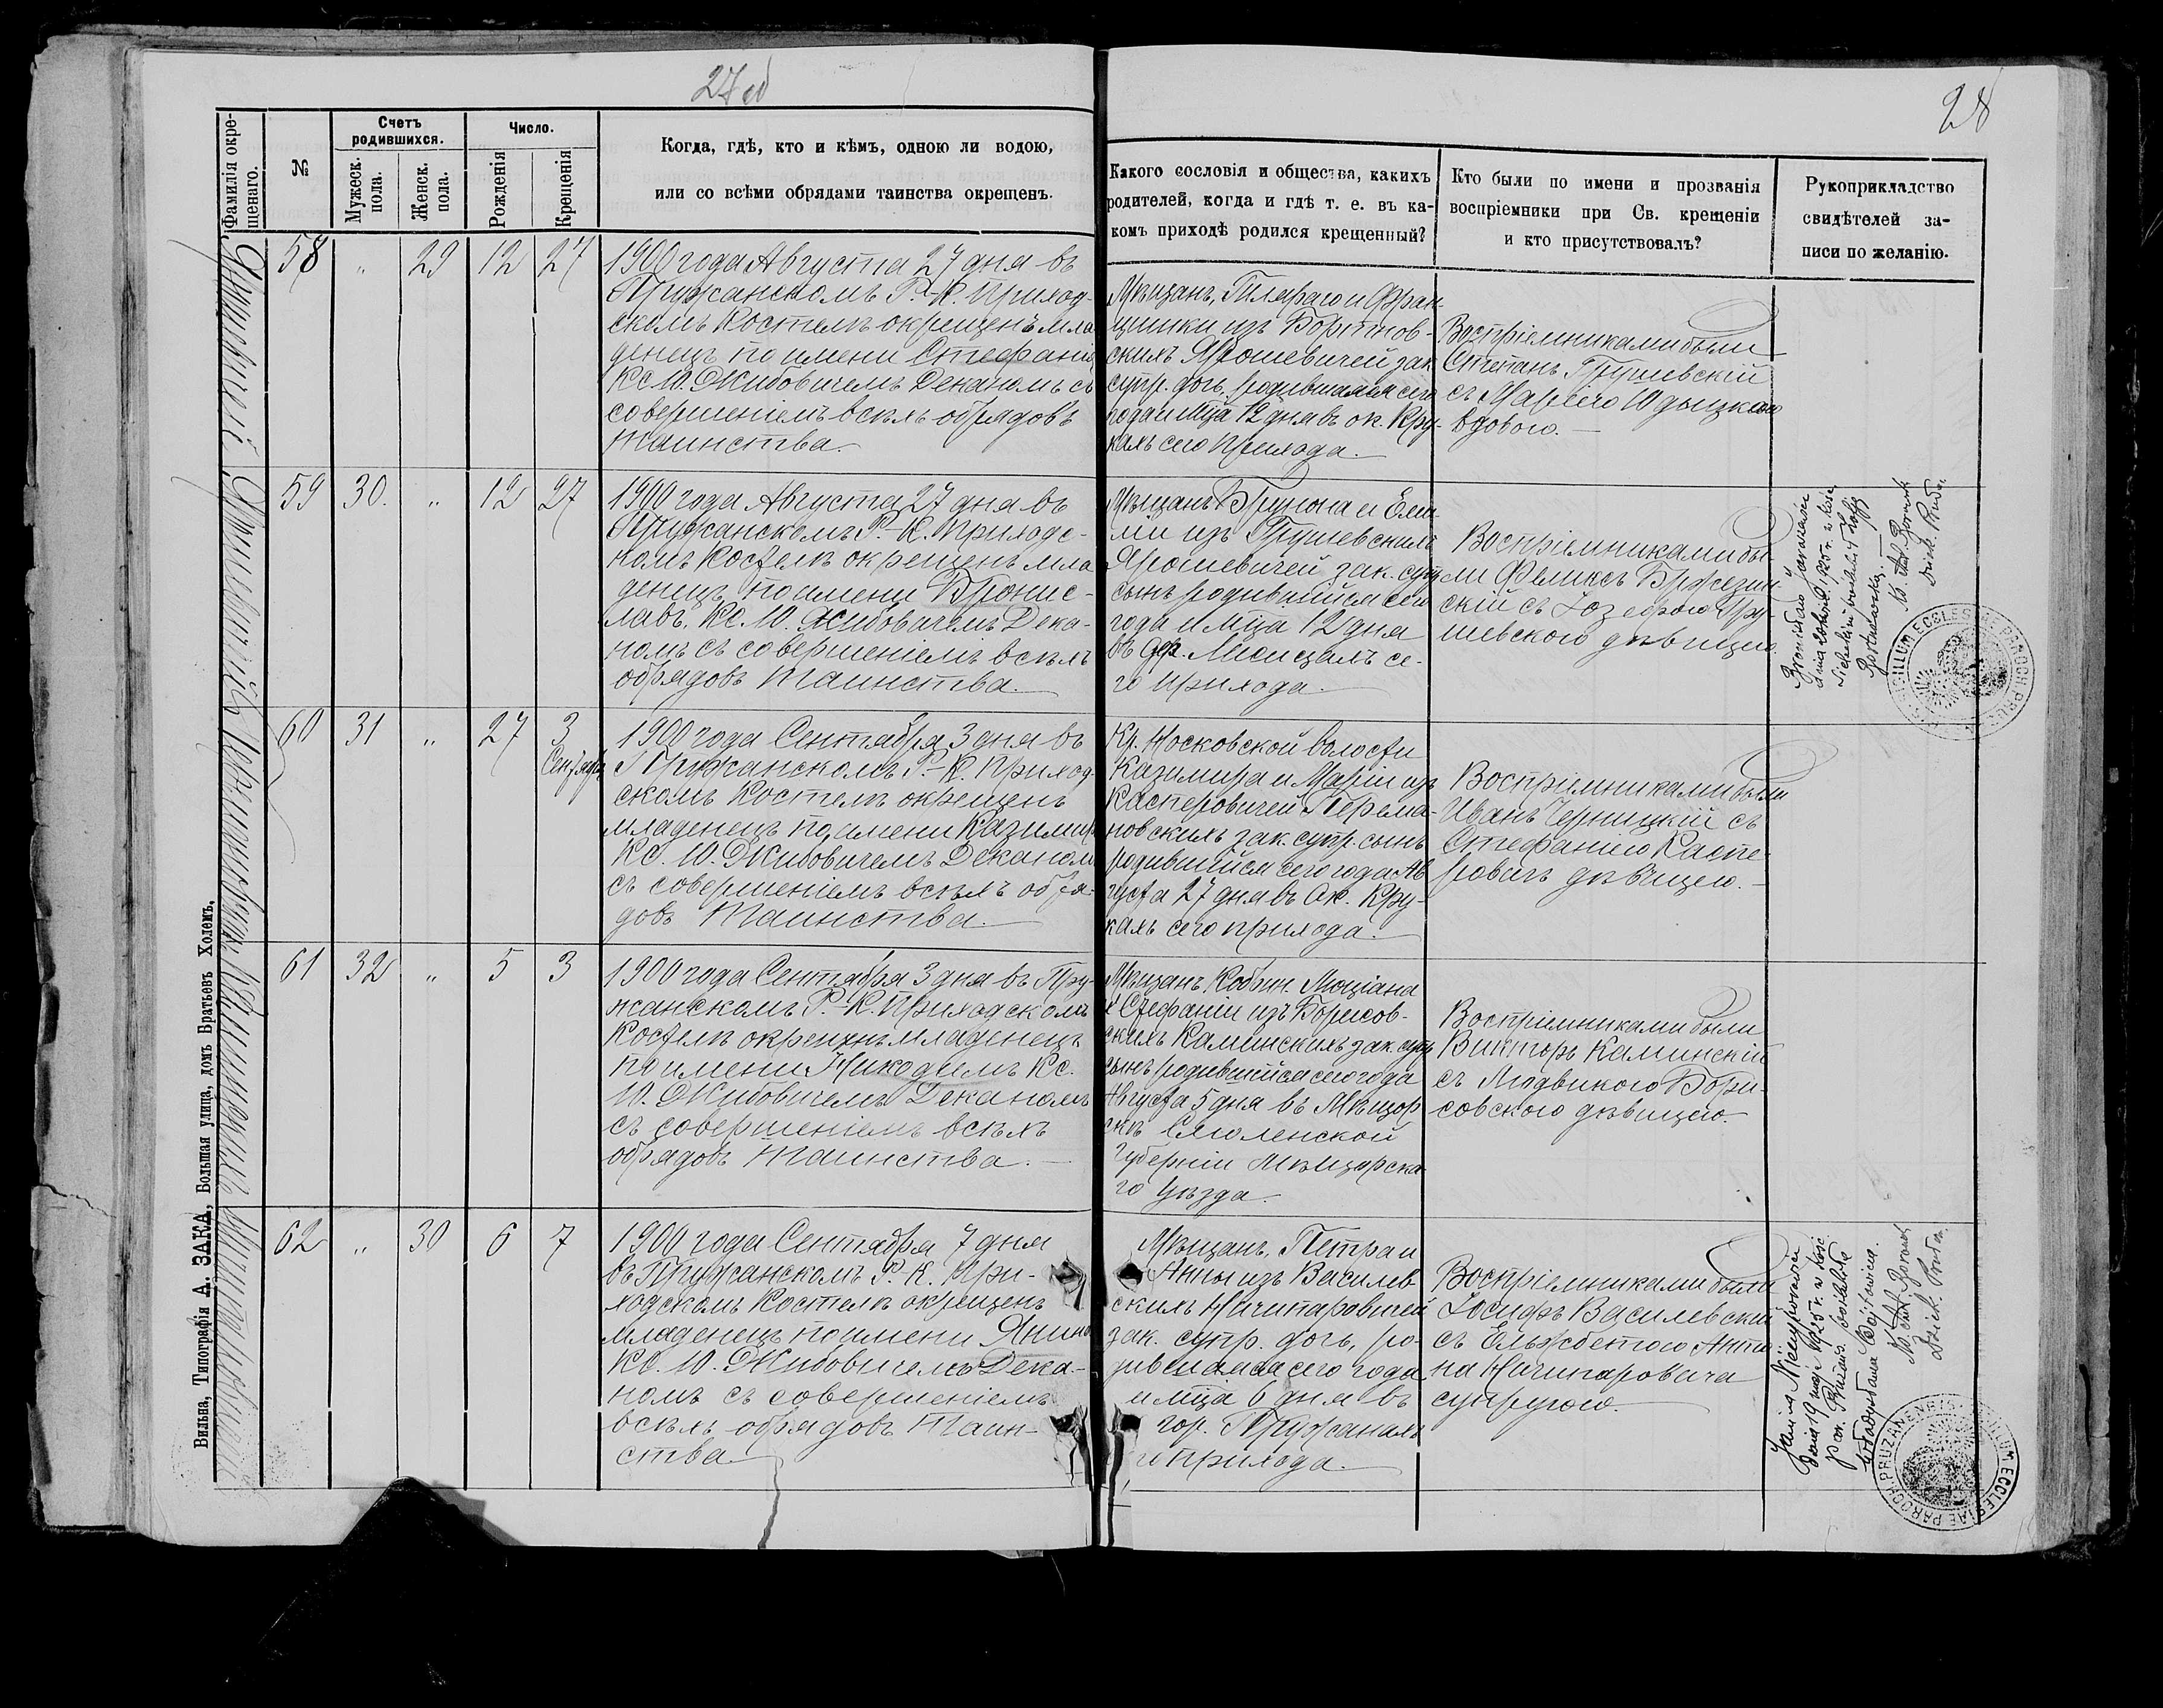 27 об
28
Фамилія окре-
щеннаго.
№
Счетъ
родившихся.
Мужеск.
пола.
Женск.
пола.
Число.
Рожденія
Крещенія
Когда, гдѣ, кто и кѣмъ, одною ли водою,
или со всѣми обрядами таинства окрещенъ.
Какого сословія и общества, какихъ
родителей, когда и гдѣ т. е. въ ка-
комъ приходѣ родился крещенный?
Кто были по имени и прозванія
воспріемники при Св. крещеніи
и кто присутствовалъ?
Рукоприкладство
свидѣтелей за-
писи по желанію.
58 " 29 12 27
1900 года Августа 27 дня въ
Пружанскомъ Р.-К. Приход-
скомъ Костелѣ окрещенъ мла
денецъ по имени Стефанія
Кс. Ю. Жибовичемъ Деканомъ съ
совершеніемъ всѣхъ обрядовъ
таинства.
Мѣщанъ, Гиляраго и Фран-
цишки изъ Бортнов-
скихъ Ярошевичей зак.
супр. дочь, родившаяся сего
года и мѣца 12 дня въ ок. Кру-
кахъ сего прихода.
Воспріемниками были
Степанъ Грушевскій
съ Маріею Юдыцкою
вдовою.
59 30. " 12 27
1900 года Августа 27 дня въ
Пружанскомъ Р.-К. Приходс-
комъ Костелѣ окрещенъ мла
денецъ по имени Бронис-
лавъ. Кс. Ю. Жибовичемъ Дека-
номъ съ совершеніемъ всѣхъ
обрядовъ таинства.
Мѣщанъ Брунона и Еми-
ліи изъ Грушевскихъ
Ярошевичей зак. супр
сынъ родившійся сего
года и мѣца 12 дня
въ дер. се-
го прихода.
Воспріемниками бы-
ли Феликсъ Бржезин
скій съ Іозефою Гру-
шевскою дѣвицею.
Bronisław Jaroszewicz
dnia 1925 r. w kośc.
Zofją
60 31 " 27 3
Сентября
1900 года Сентября 3 дня въ
Пружанскомъ Р.-К. Приход-
скомъ Костелѣ окрещенъ
младенецъ по имени Казимиръ
Кс. Ю. Жибовичемъ Деканомъ
съ совершеніемъ всѣхъ обря-
довъ таинства.
Кр. Носковской волости
Казимира и Маріи изъ
Касперовичей
зак. супр. сынъ
родившійся сего года Ав
густа 27 дня въ ок. Кру-
кахъ сего прихода.
Воспріемниками были
Иванъ Черницкій съ
Стефаніею Каспе-
ровичъ дѣвицею.
61 32 " 5 3
1900 года Сентября 3 дня въ Пру-
жанскомъ Р.-К. Приходскомъ
Костелѣ окрещенъ младенецъ
по имени Никодимъ Кс.
Ю. Жибовичемъ Деканомъ
съ совершеніемъ всѣхъ
обрядовъ таинства.
Мѣщанъ Кобрин. Люціана
и Стефаніи изъ Борисов-
скихъ Каминскихъ зак. супр
сынъ родившійся сего года
Августа 5 дня въ
Смоленской
губерніи
го уѣзда.
Воспріемниками были
Викторъ Каминскій
съ Людвикою Бори-
совскою дѣвицею.
62 " 30 6 7
1900 года Сентября 7 дня
въ Пружанскомъ Р. К. При-
ходскомъ Костелѣ окрещенъ
младенецъ по имени Янина
Кс. Ю. Жибовичемъ Дека-
номъ съ совершеніемъ
всѣхъ обрядовъ Таин-
ства.
Мѣщанъ, Петра и
Анны изъ Василев
скихъ Ничипаровичей
зак. супр. дочь, ро-
дившаяся сего года
и мѣца 6 дня въ
гор. Пружанахъ
го прихода.
Воспріемниками были
Іосифъ Василевскій
съ Ельжбетою Анто-
на Ничипаровича
супругою.
dnia 19 maja 1925 r. w kośc
Władysława Wójtowicza.
SIGILLUM ECCLESIAE PAROCH PRUZANENSIS
SIGILLUM ECCLESIAE PAROCH PRUZANENSIS
Вильна, Типографія А. ЗАКА, Большая улица, домъ Братьевъ Холемъ.